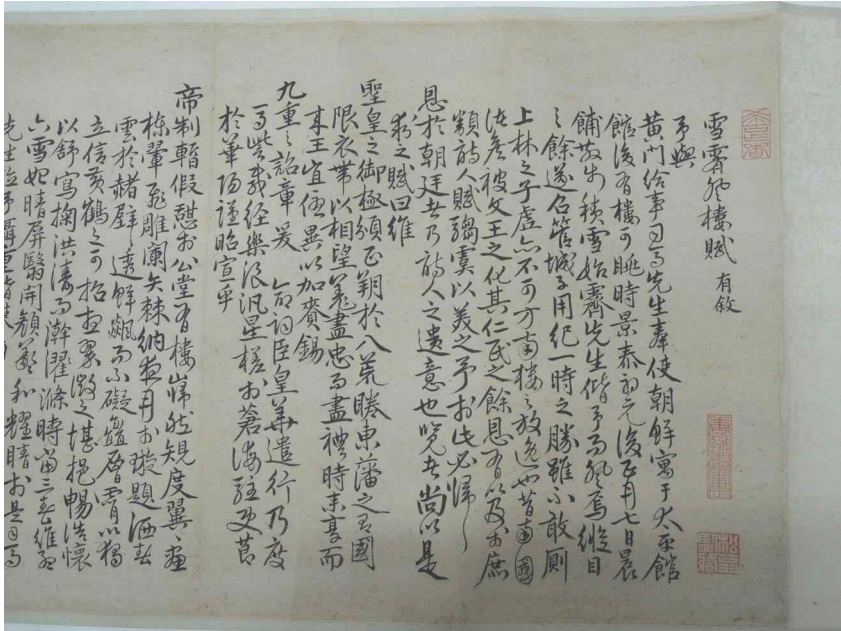 雪霽登樓賦 有敘
予與
黃門給事司馬先生奉使朝鮮寓于太平館
館後有樓可眺時景泰初元後正月七日晨
餔散步積雪始霽先生偕予而登焉縱目
之餘遂召管城子用紀一時之勝雖不敢厠
上林之子虛亦不可方南樓之放逸也昔南國
諸侯被文王之化其仁民之餘恩有以及於庶
類詩人賦騶虞以美之予於此必歸之
恩於朝廷者乃詩人之遺意也覽者尚以是
求之賦曰維
聖皇之御極頒正朔於八荒睠東藩之君國
限衣帶以相望羌盡忠而盡禮時來享而
來王宜優異以加賚錫
九重之詔章爰 命詞臣皇華遣行乃度
馬訾載經樂浪汎星槎於蒼海駐吏節
於華陽謹昭宣乎
帝制暫假憩於公堂有樓巋然規度翼翼畫
棟翬飛雕闌矢棘納夜月於璇題洒春
雲於赭壁透鮮飆而不礙軼層霄以獨
立信黃鶴之可招宜翠微之堪挹暢浩懷
以舒寫掬洪濤而澣濯滌時當三春維孟
六雪妃晴屏翳開顏羲和耀晴於是司馬